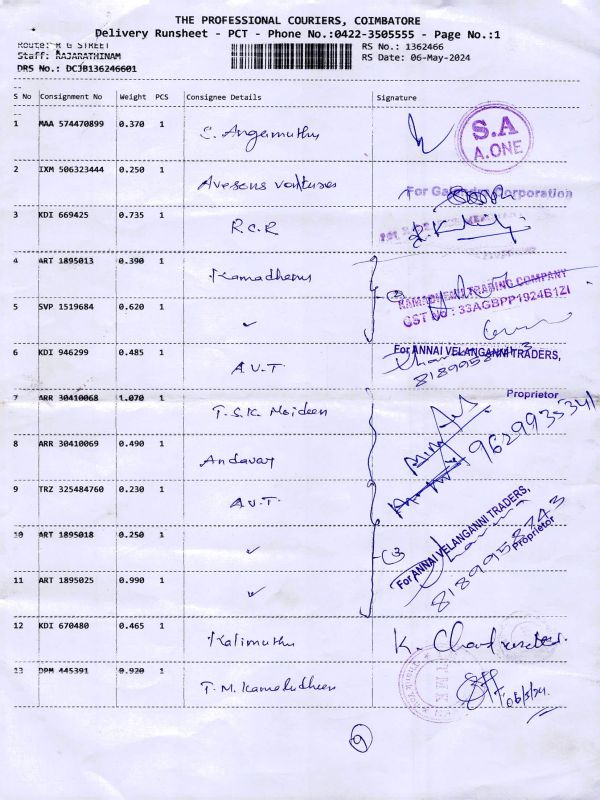 THE PROFESSIONAL COURIERS, COIMBATORE
Delivery Runsheet - PCT - Phone No.:0422-3505555 - Page No.:1
Route: R G STREET
RS No.: 1362466
Staff: RAJARATHINAM
RS Date: 06-May-2024
DRS No.: DCJB136246601
S No Consignment No Weight PCS Consignee Details Signature
1 MAA 574470899 0.370 1 C. Angamuthu
S.A
A.ONE
2 IXM 506323444 0.250 1 Avesons ventures
For Corporation
3 KDI 669425 0.735 1 R.C.R
4 ART 1895013 0.390 1 Kamadhenu
KAMADHENU TRADING COMPANY
GST No : 33AGBPP1924B1ZI
5 SVP 1519684 0.620 1 ✓
6 KDI 946299 0.485 1 A.V.T
For ANNAI VELANGANNI TRADERS,
Proprietor
7 ARR 30410068 1.070 1 T.S.K. Moideen
9629935341
8 ARR 30410069 0.490 1 Andavar
9 TRZ 325484760 0.230 1 A.V.T.
For ANNAI VELANGANNI TRADERS,
Proprietor
8189958743
10 ART 1895018 0.250 1 ✓
3
11 ART 1895025 0.990 1 ✓
12 KDI 670480 0.465 1 Kalimuthu
13 DPM 445391 0.920 1 T.M. Kamaludheen
06/5/24.
9